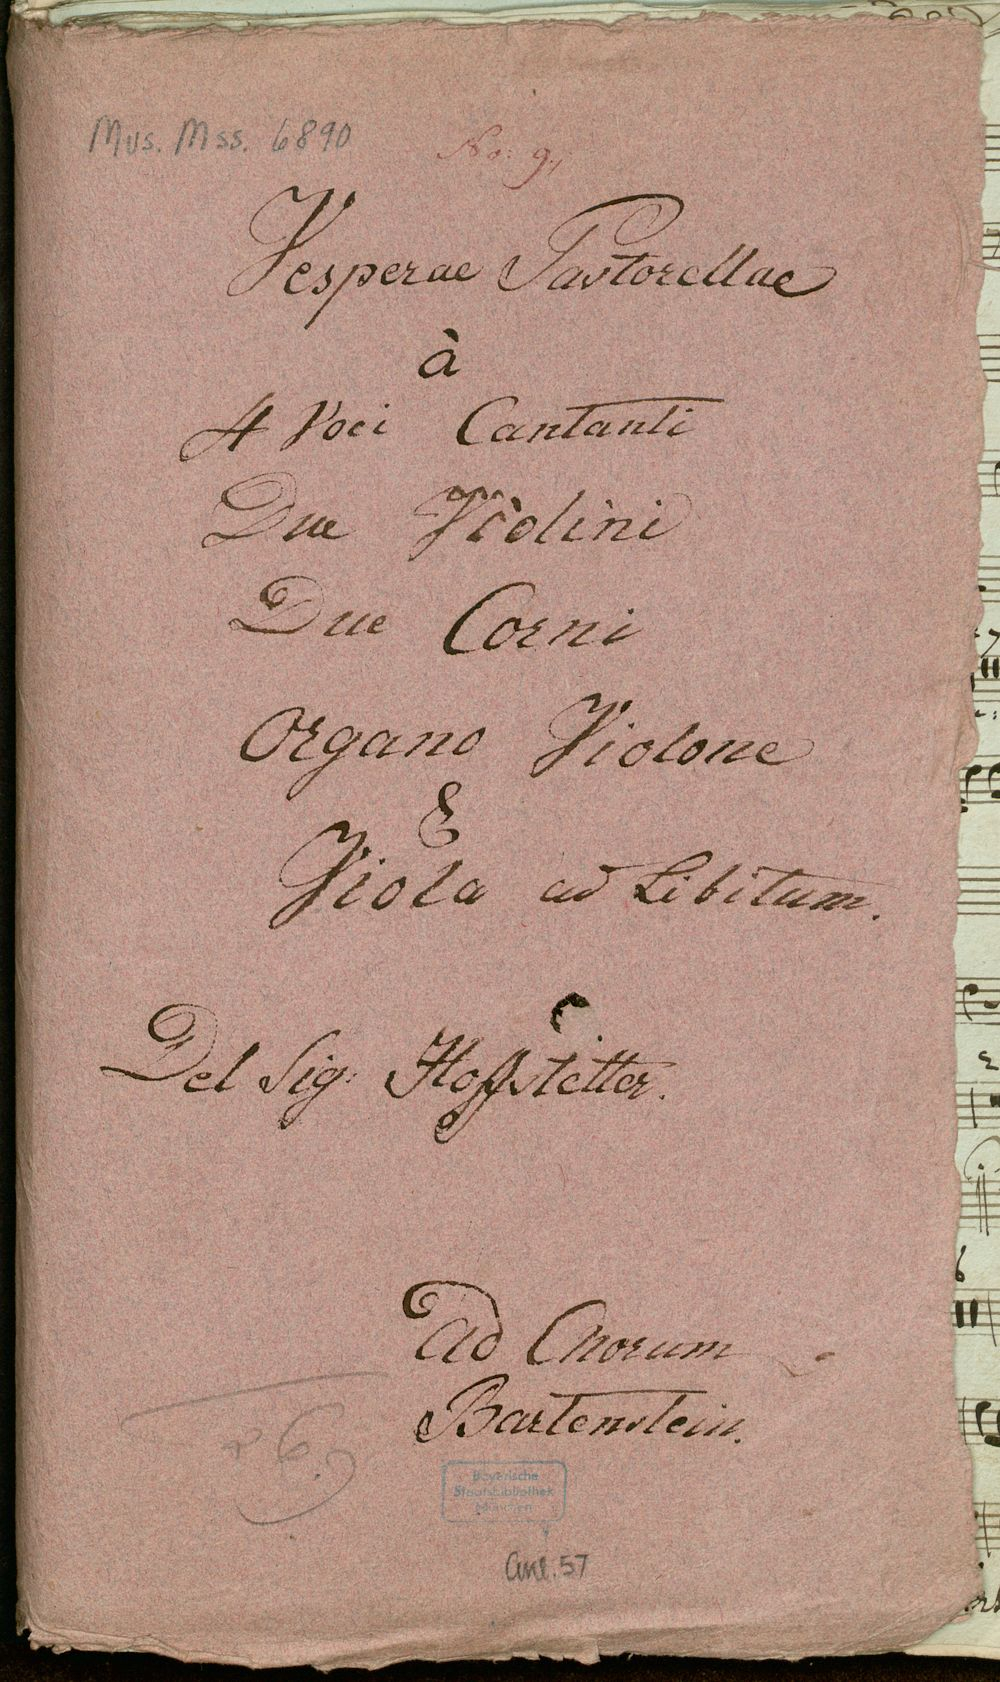 Mus. Mss. 6890
No: 9.
Vesperae Pastorellae
à
4 Voci Cantanti
Due Violini
Due Corni
Organo Violone
E
Viola ad Libitum.
Del Sig: Hoffstetter.
Ad Chorum
Bartenstein.
Bayerische
Staatsbibliothek
München
57